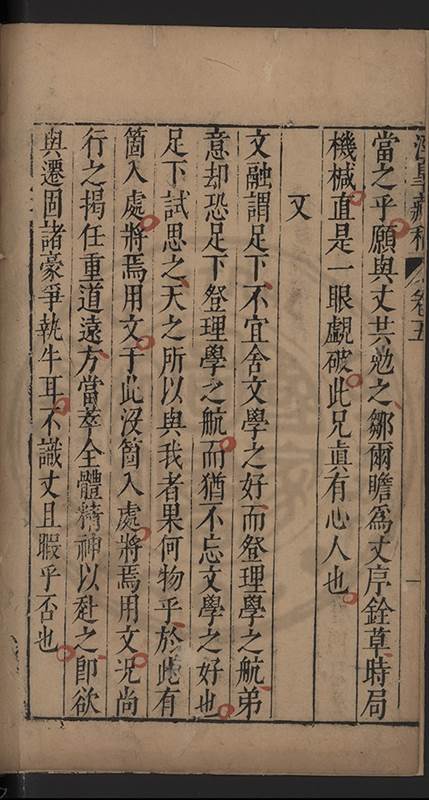 卷五
當之乎願與丈共勉之鄒爾瞻為丈序銓草時局
機械直是一眼覷破此兄眞有心人也
又
文融謂足下不宜舍文學之好而登理學之航弟
意却恐足下登理學之航而猶不忘文學之好也
足下試思之天之所以與我者果何物乎於此有
箇入處將焉用文于此沒箇入處將焉用文况尚
行之揭任重道遠方當萃全體精神以赴之卽欲
與遷固諸豪爭執牛耳不識丈且暇乎否也